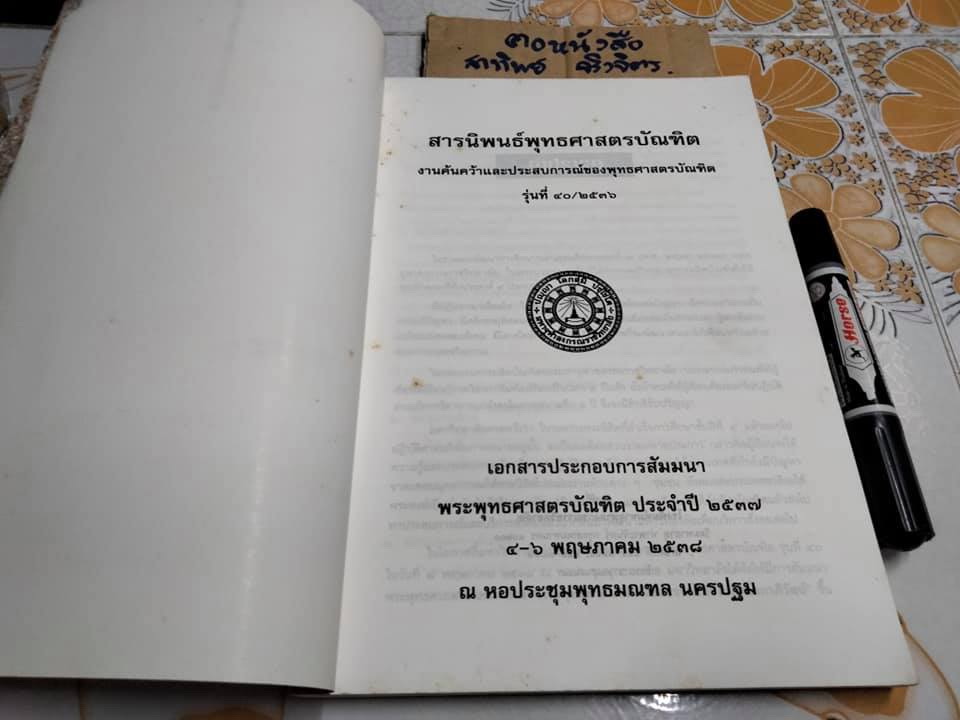 ตอหนังสือ
สาทิพย์ จิวจิตร.
สารนิพนธ์พุทธศาสตรบัณฑิต
งานค้นคว้าและประสบการณ์ของพุทธศาสตรบัณฑิต
รุ่นที่ ๔๐/๒๕๓๖
ปญฺญา โลกสฺมิ ปชฺโชโต
มหาจุฬาลงกรณราชวิทยาลัย
เอกสารประกอบการสัมมนา
พระพุทธศาสตรบัณฑิต ประจำปี ๒๕๓๗
๔-๖ พฤษภาคม ๒๕๓๘
ณ หอประชุมพุทธมณฑล นครปฐม
Horse